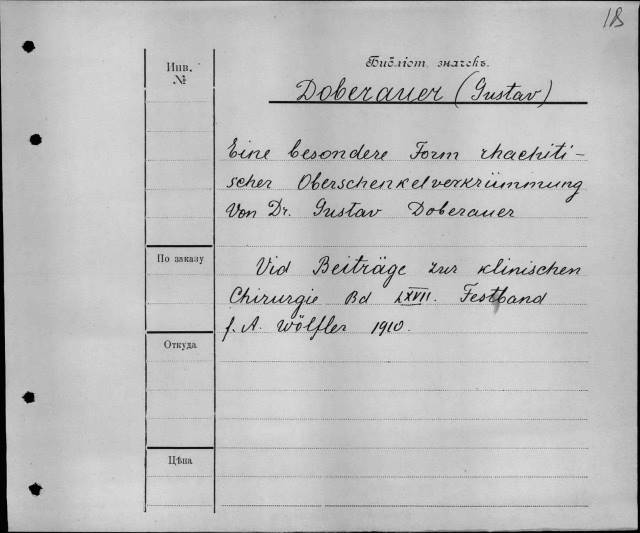 18
Инв.
№
Библіот. значекъ.
Doberauer (Gustav)
Eine besondere Form rhachiti-
scher Oberschenkelverkrümmung
Von Dr. Gustav Doberauer
По заказу
Vid Beiträge zur klinischen
Chirurgie Bd LXVII. Festband
f. A. Wölfler 1910.
Откуда
Цѣна